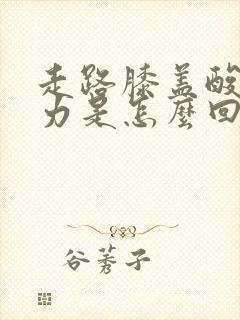 走路膝盖酸
力是怎麼回
谷莠子